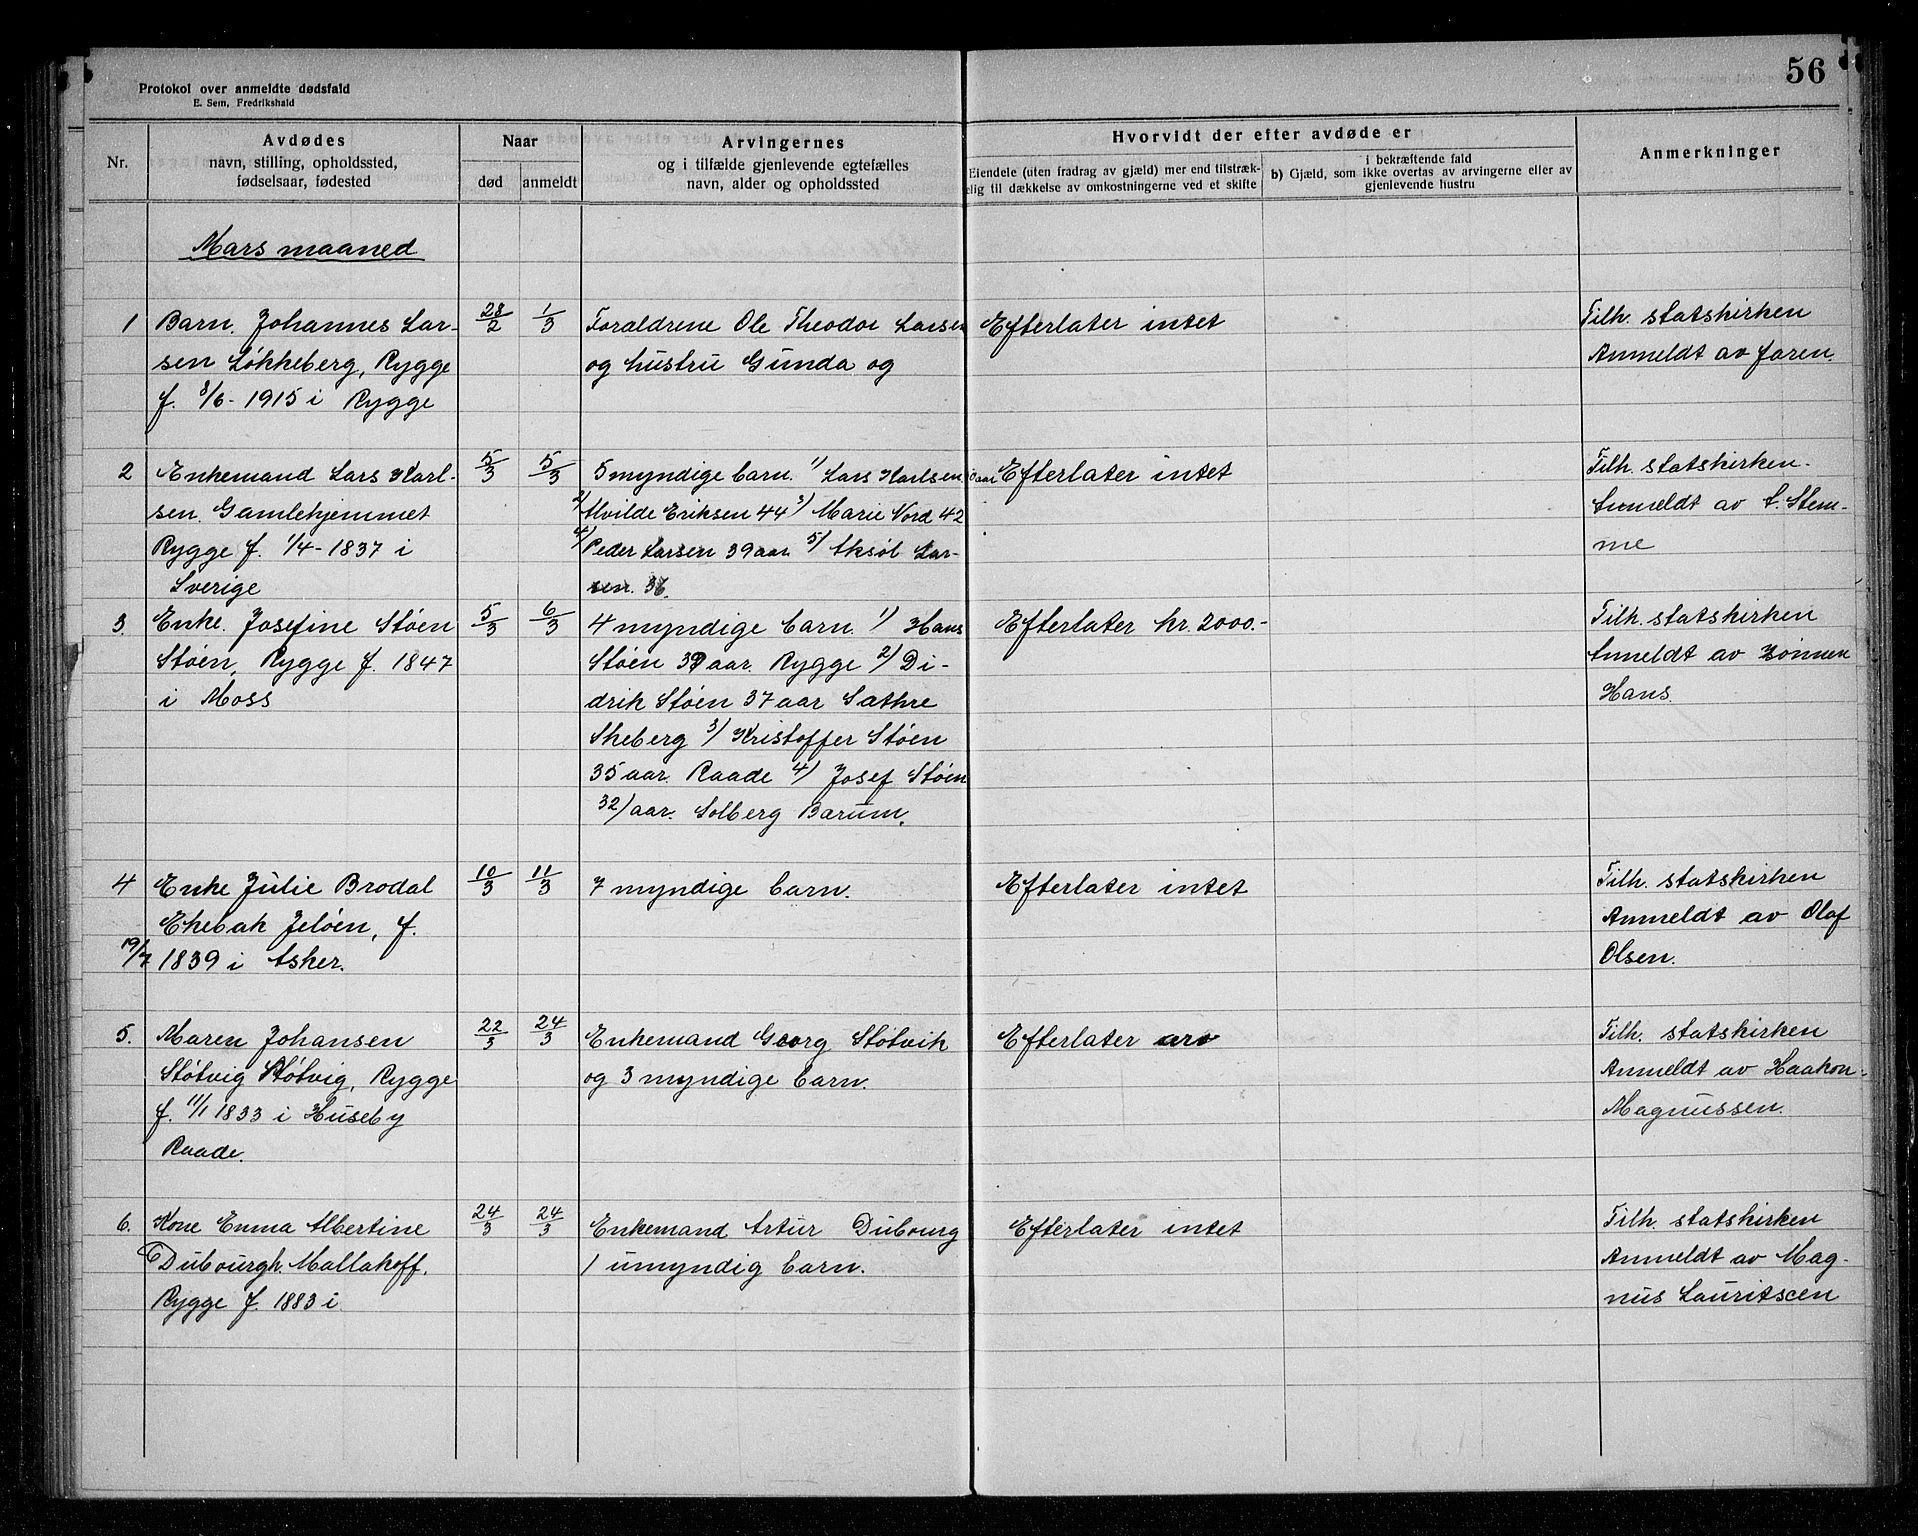 56
Protokol over anmeldte dødsfald
E. Sem, Fredrikshald
Nr.
Avdødes
navn, stilling, opholdssted,
fødselsaar, fødested
Naar
død
anmeldt
Arvingernes
og i tilfælde gjenlevende egtefælles
navn, alder og opholdssted
Hvorvidt der efter avdøde er
Eiendele (uten fradrag av gjæld) mer end tilstræk-
elig til dækkelse av omkostningerne ved et skifte
i bekræftende fald
b) Gjæld, som ikke overtas av arvingerne eller av
gjenlevende hustru
Anmerkninger
Mars maaned
1
Barn. Johannes Lar-
sen Løkkeberg, Rygge
f. 8/6 - 1915 i Rygge
28/2
1/3
Foraldrene Ole Theodor Larsen
og hustru Gunda og
Efterlater intet
Tilh. statskirken
Anmeldt av faren.
2
Enkemand Lars Karl-
sen. Gamlehjemmet
Rygge f. 1/4 - 1837 i
Sverige
5/3
5/3
5 myndige barn. 1/ Lars Karlsen aar
2/ Alvilde Eriksen 44 3/ Marie Nord 42
4/ Peder Larsen 39 aar 5/ Aksøl Lar-
sen. 36.
Efterlater intet
Tilh. statskirken.
Anmeldt av S. Stem-
me
3.
Enke. Josefine Støen
Støen, Rygge f. 1847
i Moss
5/3
6/3
4 myndige barn. 1/ Hans
Støen 39 aar. Rygge 2/ Di-
drik Støen 37 aar Sathre
Skeberg 3/ Kristoffer Støen
35 aar. Raade 4/ Josef Støen
32/ aar. Solberg Barum.
Efterlater kr. 2000.-
Tilh. statskirken
Anmeldt av sønnen
Hans.
4
Enke Julie Brodal
Ekebak Jeløen, f.
19/7 1839 i Asker.
10/3
11/3
7 myndige barn.
Efterlater intet
Tilh. statskirken
Anmeldt av Olaf
Olsen.
5.
Maren Johansen
Støtvig Støtvig, Rygge
f. 11/1 1833 i Huseby
Raade.
22/3
24/3
Enkemand Georg Støtvik
og 3 myndige barn.
Efterlater arv
Tilh. statskirken
Anmeldt av Haakon-
Magnussen.
6.
Kone Emma Albertine
Dubourgh. Mallakoff.
Rygge f. 1883 i
24/3
24/3
Enkemand Artur Dubourg
1 umyndig barn.
Efterlater intet
Tilh. statskirken
Anmeldt av Mag-
nus Lauritscen